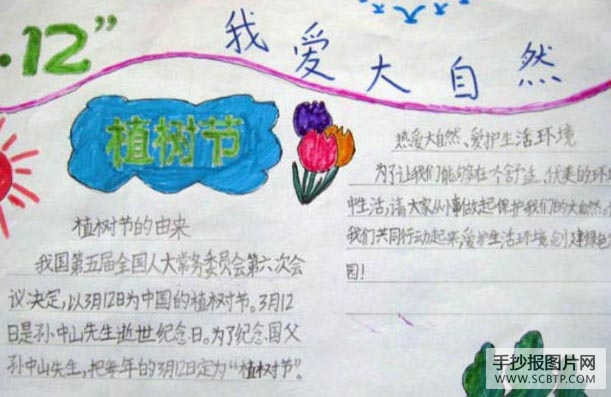 ·12”
我爱大自然
植树节
植树节的由来
我国第五届全国人大常务委员会第六次会
议决定,以3月12日为中国的植树节。3月12
日是孙中山先生逝世纪念日。为了纪念国父
孙中山先生,把每年的3月12日定为“植树节”。
热爱大自然、爱护生活环境
为了让我们能够在个舒适、优美的环
中生活,请大家从小事做起保护我们的大自然,
我们共同行动起来,爱护生活环境,创建绿色
园!
手抄报图片网
WWW.SCBTP.COM